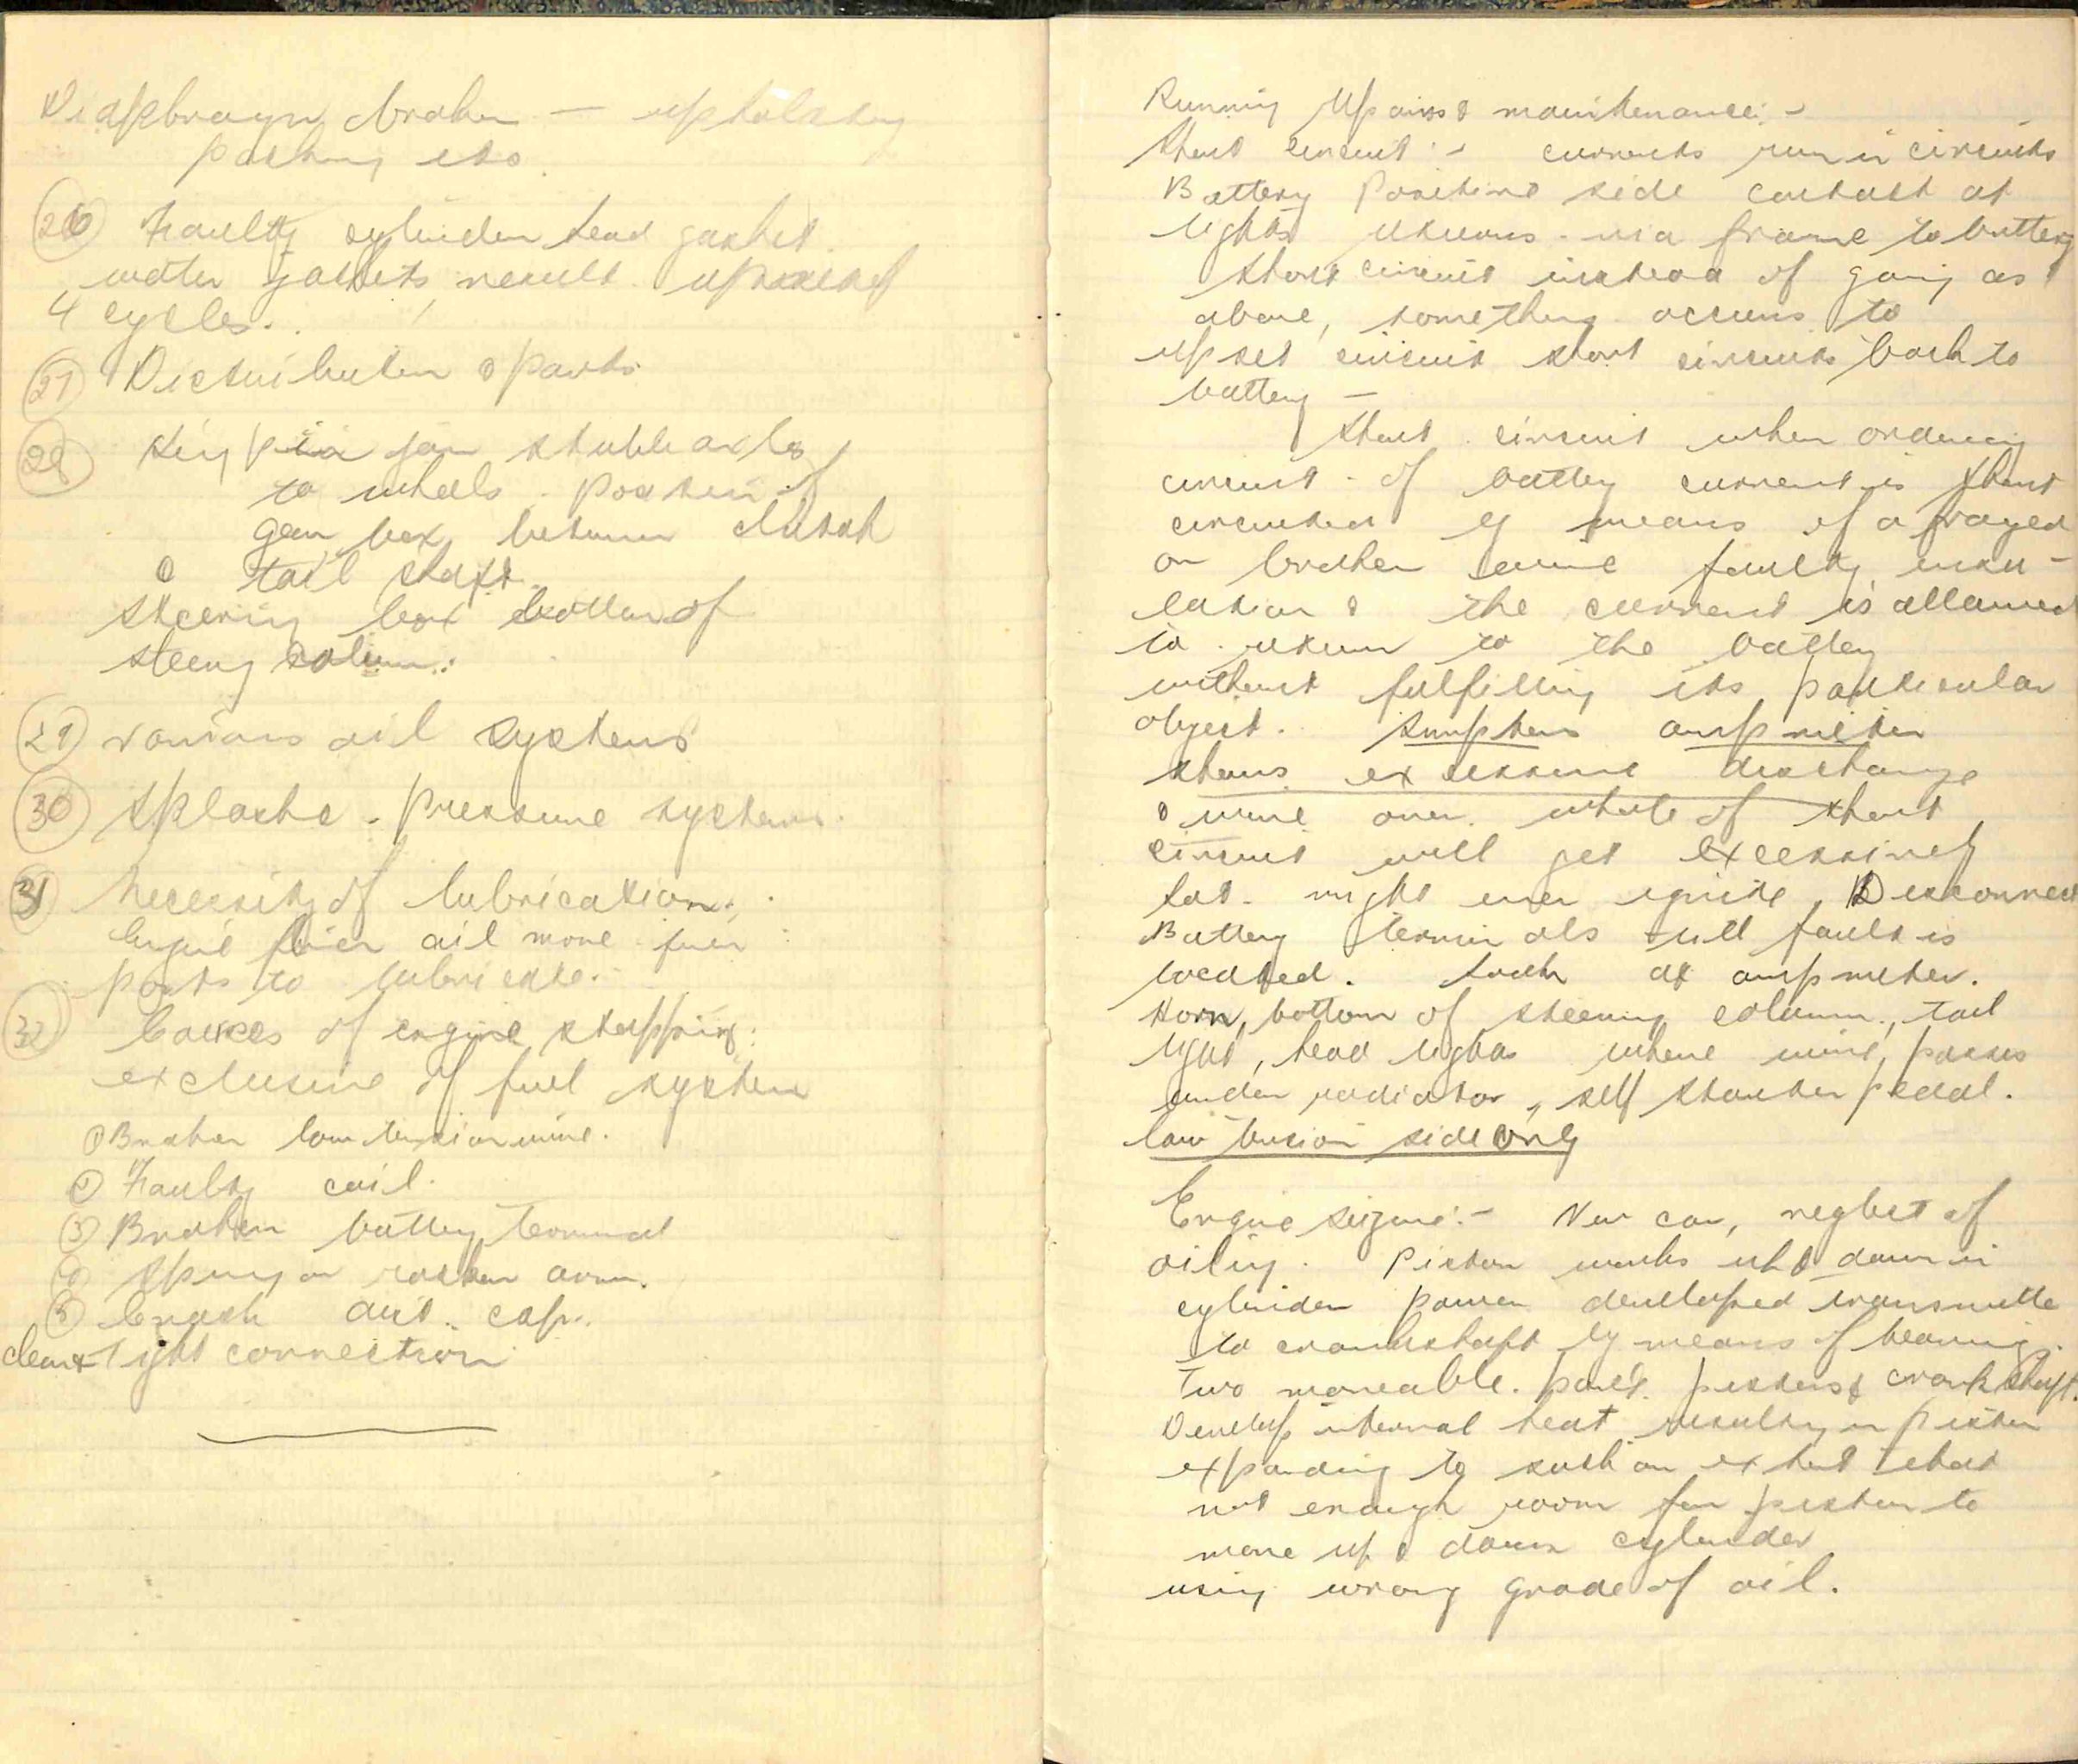 Diaphragm broken — upholstery
packing etc.
26 Faulty cylinder head gasket.
water jackets result
4 cycles.
27 Distributor & parts
28 King pin for stubb axles
to wheels. Position of
gear box between clutch
& tail shaft.
Steering box bottom of
steeng colum:
29 various oil systems
30 Splashe - pressure systems.
31 Necessity of lubrication.
Engine oil more fuer
parts to lubricate.
32 Causes of engine stopping:
exclusive of fuel system
1 Broken low tension wire.
2 Faulty coil.
3 Broken battery terminal
4 Spring on rocker arm.
5 Crack dist. cap.
clean & tight connection
Running Repairs & maintenance: -
Short circuit: - currents run in circuits
Battery Positive side contact at
lights returns via frame to battery
Short circuit instead of going as
above, something occurs to
upset circuit short circuits back to
battery —
Short circuit when ordinary
circuit of battery current is short
circuited by means of a frayed
or broken wire faulty insu-
lation & the current is allowed
to return to the battery
without fulfilling its particular
object. Symptens ampmeter
shows excessive discharge
& wire over whole of short
circuit will get excessively
hot. might even ignite. Disconnect
Battery terminals till fault is
located. Look at ampmeter.
Horn, bottom of steering column, tail
light, head lights where wire passes
under radiator, self starter pedal.
low tension side only
Engine seizure: - New car, neglect of
oiling. Piston works up & down in
cylinder power developed transmitte
to crankshaft by means of bearing.
Two moveable parts. pistons & crank shaft.
Develop internal heat resulting in piston
expanding to such an extent that
not enough room for piston to
move up & down cylinder
using wrong grade of oil.